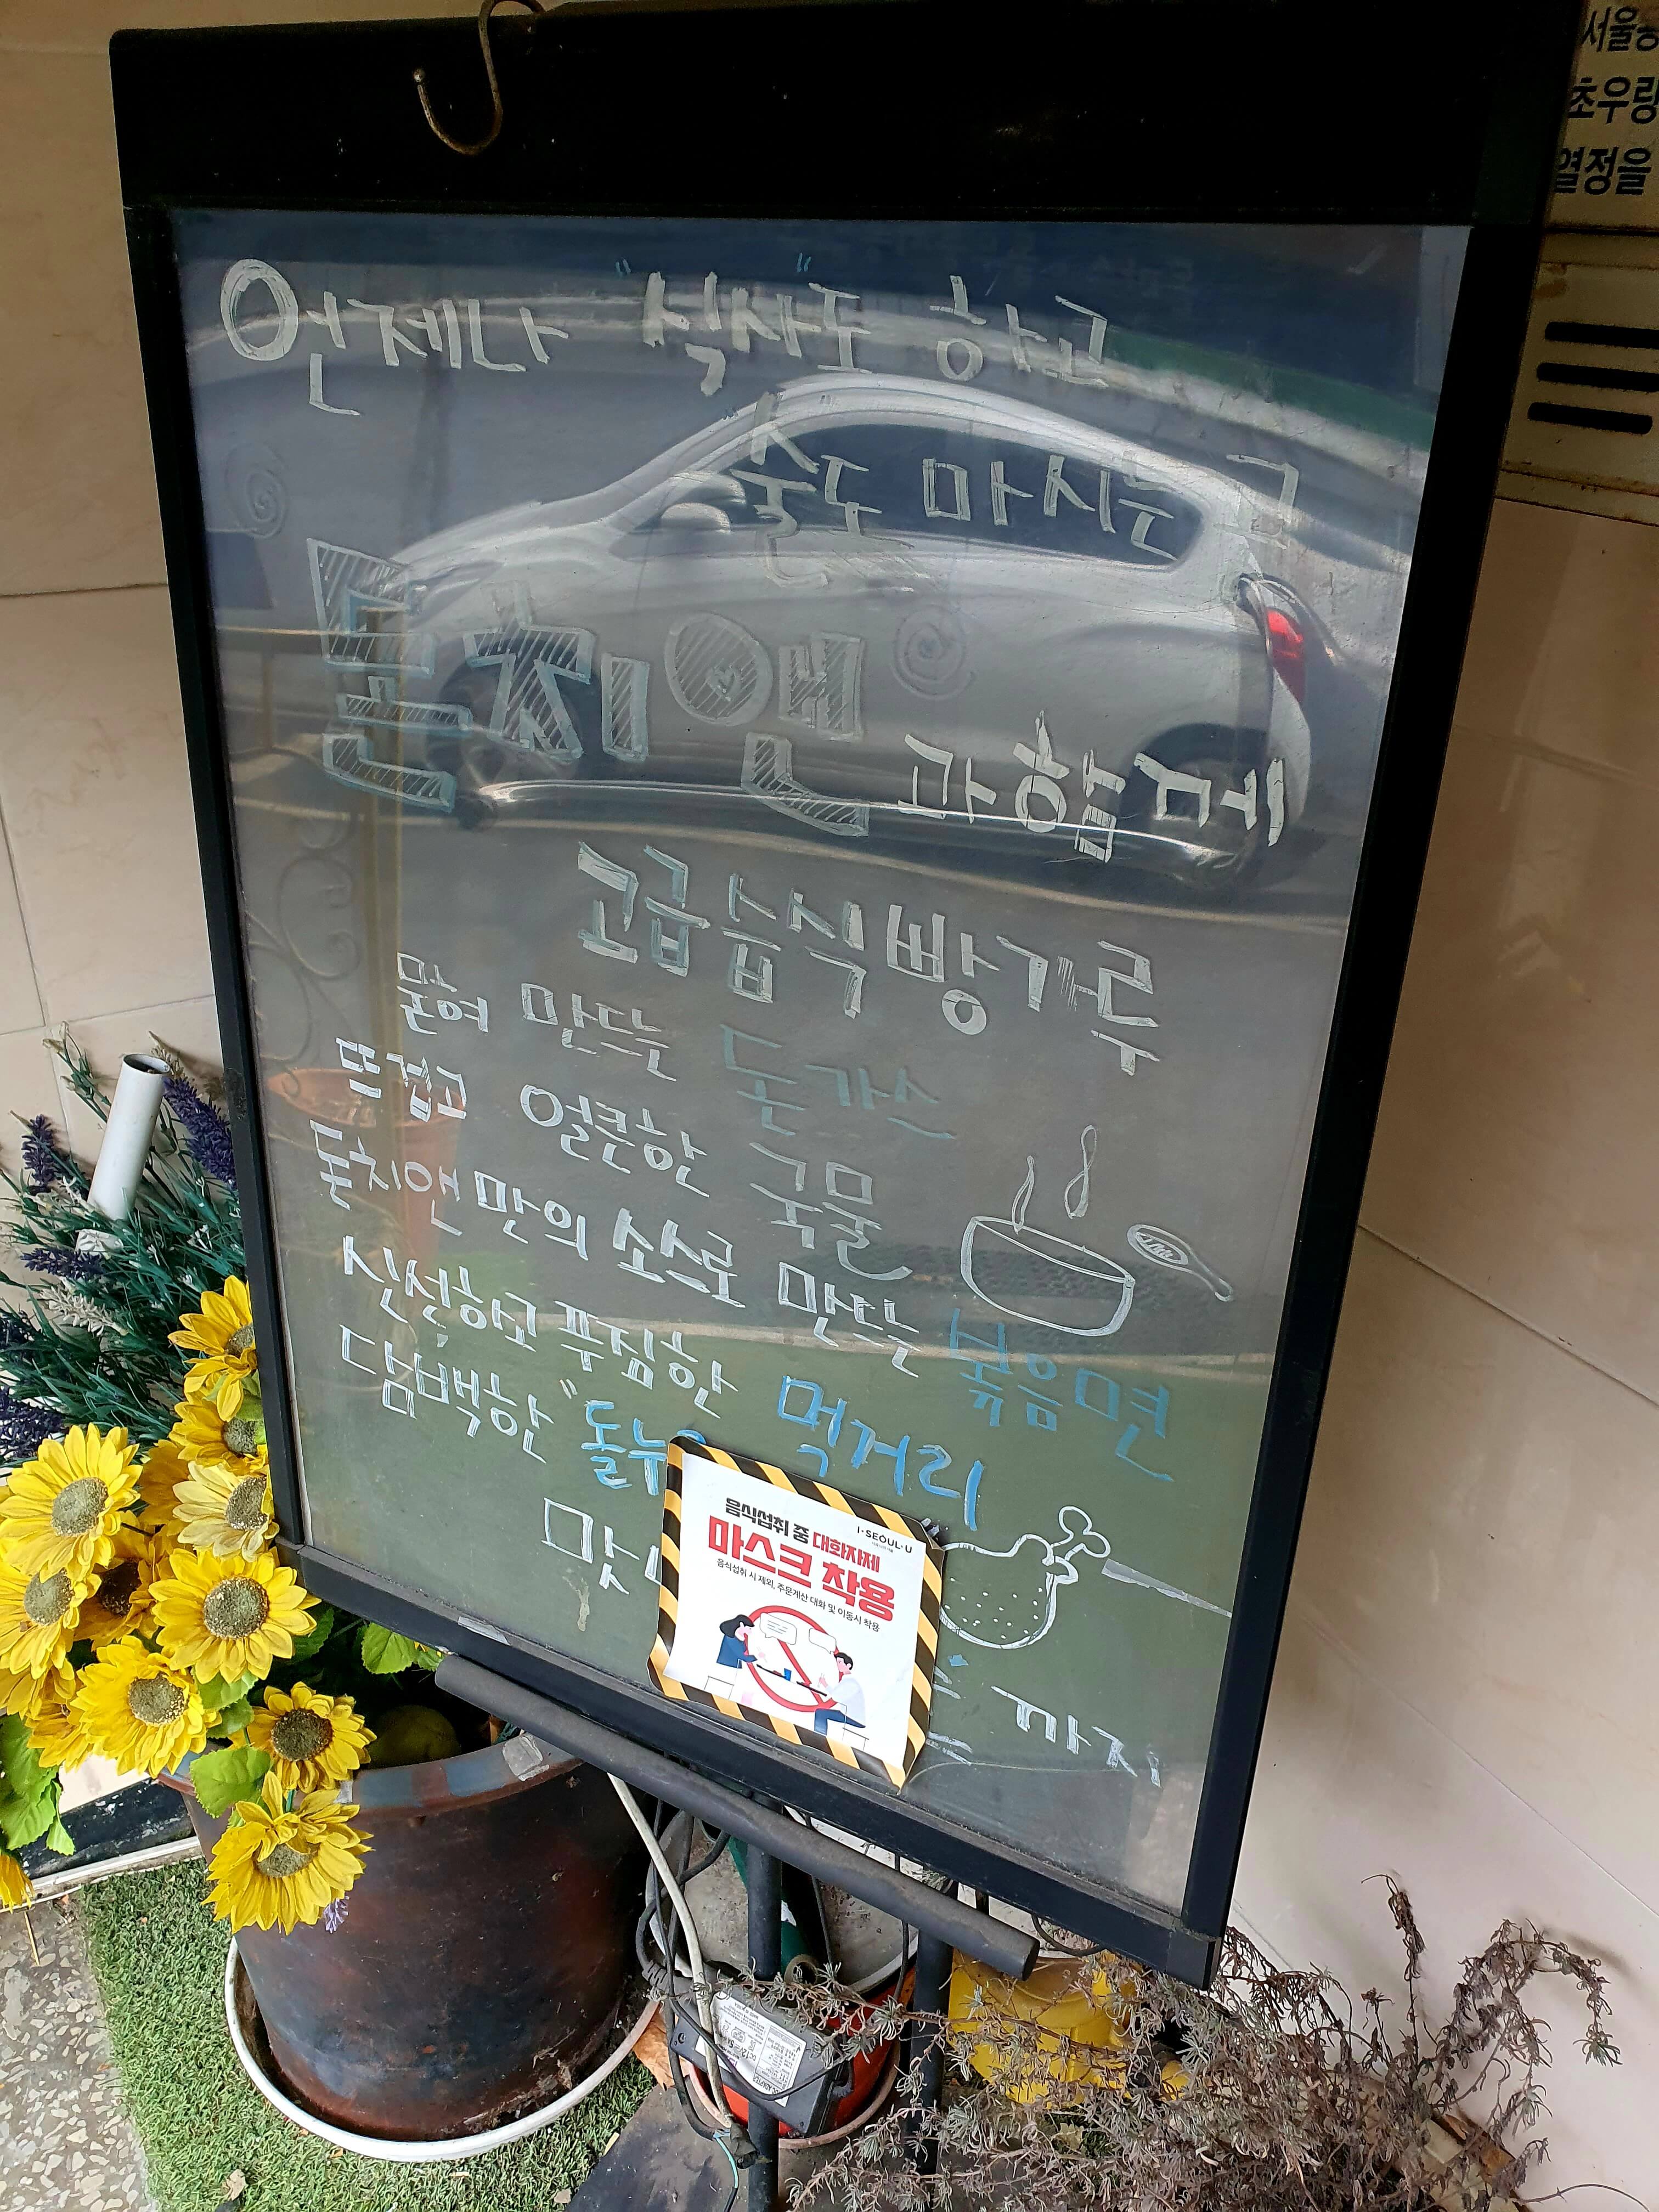 언제나 "식사"도 하고
"술"도 마시는 그
돈치앤과 함께
고급습식빵가루
묻혀 만드는 돈가스
뜨겁고 얼큰한 국물
돈치앤만의 소스로 만드는 볶음면
신선하고 푸짐한 먹거리
담백한 "돌누
맛
까지
음식섭취 중 대화자제
I·SEOUL·U
마스크 착용
음식섭취 시 제외, 주문계산 대화 및 이동시 착용
서울
초우량
열정을